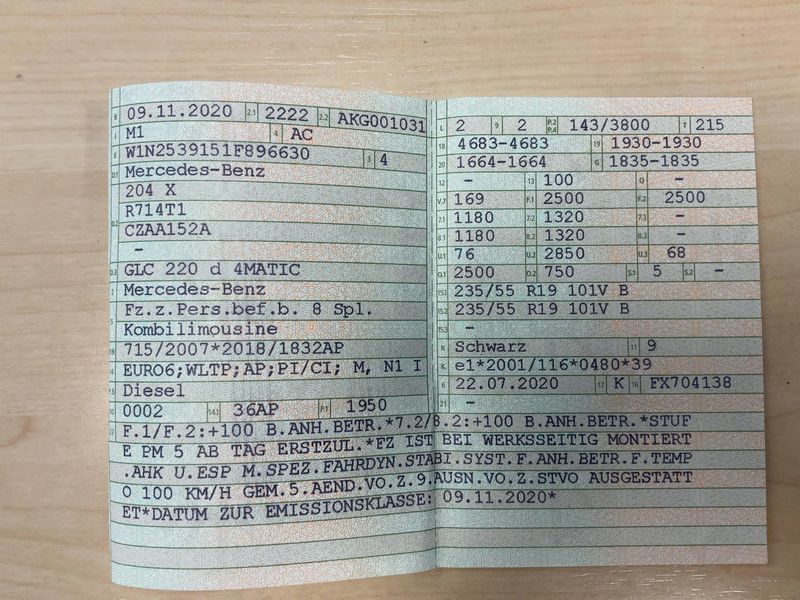 B 09.11.2020 2.1 2222 2.2 AKG001031
J M1 4 AC
E W1N2539151F896630 3 4
D.1 Mercedes-Benz
204 X
D.2 R714T1
CZAA152A
-
D.3 GLC 220 d 4MATIC
2 Mercedes-Benz
5 Fz.z.Pers.bef.b. 8 Spl.
Kombilimousine
V.9 715/2007*2018/1832AP
14 EURO6;WLTP;AP;PI/CI; M, N1 I
P.3 Diesel
10 0002 14.1 36AP P.1 1950
L 2 9 2 P.2 P.4 143/3800 T 215
18 4683-4683 19 1930-1930
20 1664-1664 G 1835-1835
12 - 13 100 Q -
V.7 169 F.1 2500 F.2 2500
7.1 1180 7.2 1320 7.3 -
8.1 1180 8.2 1320 8.3 -
U.1 76 U.2 2850 U.3 68
O.1 2500 O.2 750 S.1 5 S.2 -
15.1 235/55 R19 101V B
15.2 235/55 R19 101V B
15.3 -
R Schwarz 11 9
K e1*2001/116*0480*39
6 22.07.2020 17 K 16 FX704138
21 -
22 F.1/F.2:+100 B.ANH.BETR.*7.2/8.2:+100 B.ANH.BETR.*STUF
E PM 5 AB TAG ERSTZUL.*FZ IST BEI WERKSSEITIG MONTIERT
.AHK U.ESP M.SPEZ.FAHRDYN.STABI.SYST.F.ANH.BETR.F.TEMP
O 100 KM/H GEM.5.AEND.VO.Z.9.AUSN.VO.Z.STVO AUSGESTATT
ET*DATUM ZUR EMISSIONSKLASSE: 09.11.2020*